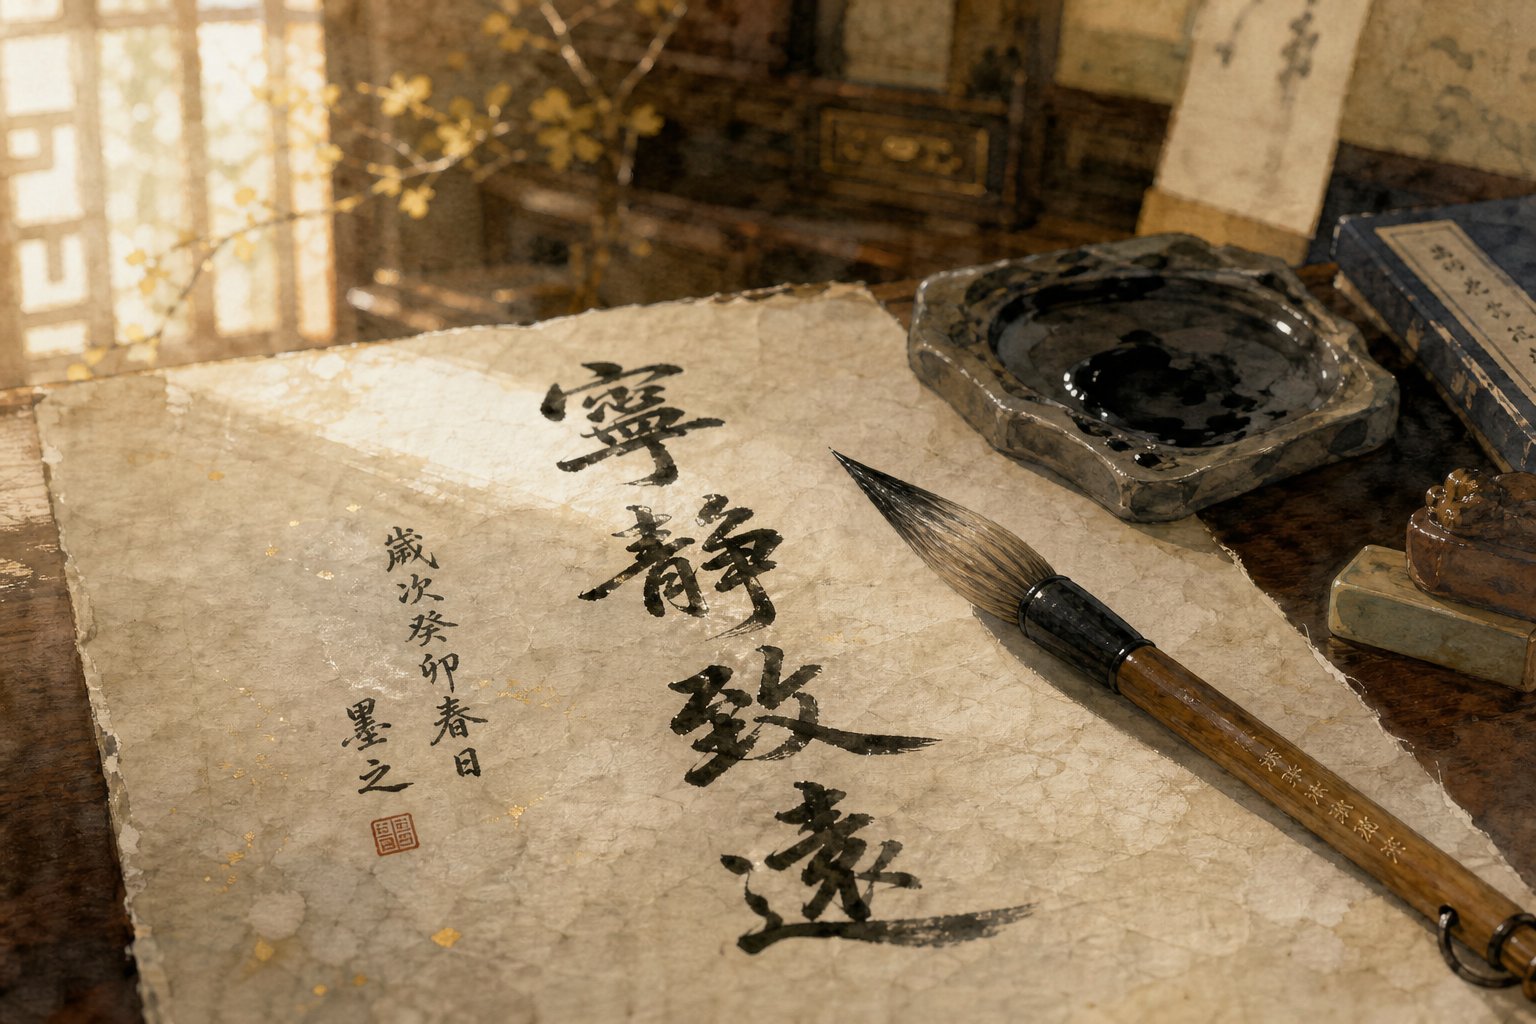 寧靜致遠
歲次癸卯春日
墨之